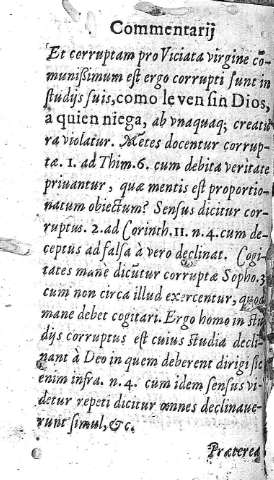 Commentarij
Et corruptam pro Viciata virgine cō-
munißimum est ergo corrupti sunt in
studijs suis, como le ven sin Dios,
a quien niega, ab vnaquaq; creatu
ra violatur. Mētes docentur corrup-
tæ. 1. ad Thim. 6. cum debita veritate
priuantur, quæ mentis est proportio-
natum obiectum? Sensus dicitur cor-
ruptus. 2. ad Corinth. 11. n. 4. cum de-
ceptus ad falsa à vero declinat. Cogi
tates mane dicūtur corruptæ Sopho. 3
cum non circa illud exercentur, quod
mane debet cogitari. Ergo homo in stu
dijs corruptus est cuius studia decli-
nant à Deo in quem deberent dirigi sic
enim infra. n. 4. cūm idem sensus vi-
detur repeti dicitur omnes declinaue-
runt simul, &c.
Præterea